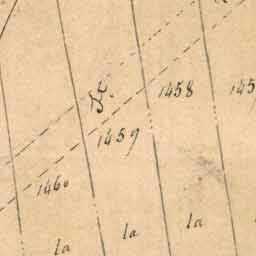 1458
1459
1460
la
la
la